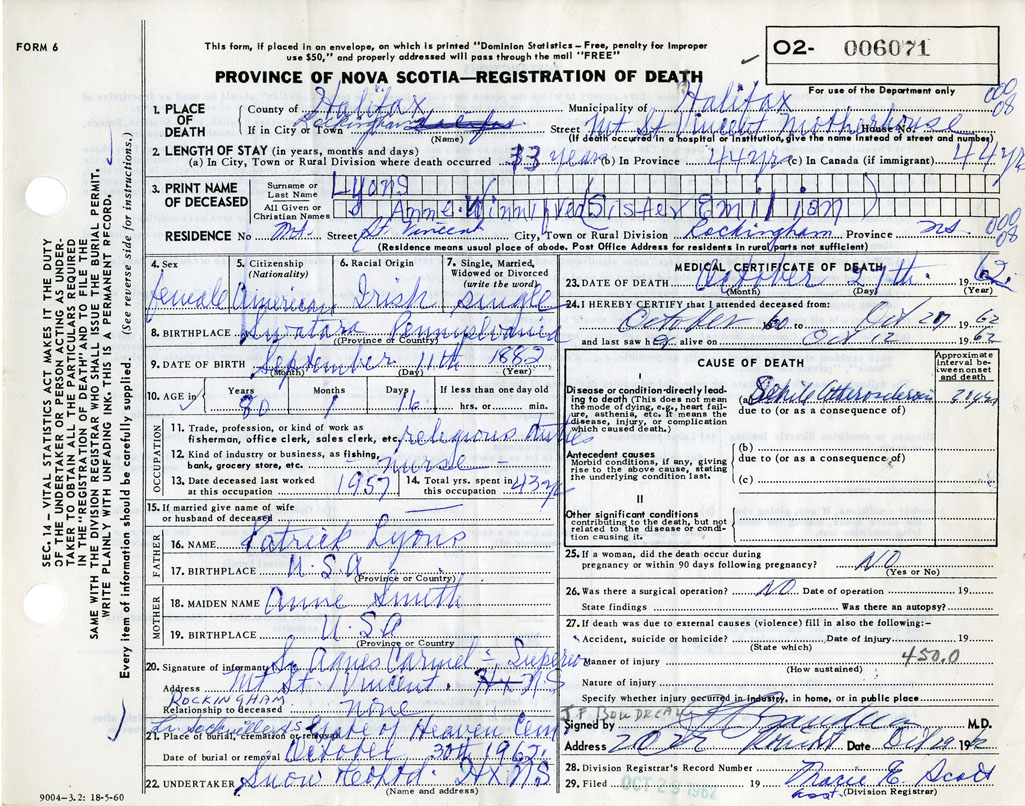 FORM 6
This form, if placed in an envelope, on which is printed "Dominion Statistics – Free, penalty for improper
use $50," and properly addressed will pass through the mail "FREE"
O2- 006071
For use of the Department only
PROVINCE OF NOVA SCOTIA—REGISTRATION OF DEATH
000
08
1. PLACE OF DEATH
County of Halifax Municipality of Halifax
If in City or Town Rockingham Halifax (Name) Street Mt St Vincent Motherhouse House No.
(If death occurred in a hospital or institution, give the name instead of street and number)
2. LENGTH OF STAY (in years, months and days)
(a) In City, Town or Rural Division where death occurred 33 years (b) In Province 44 yrs (c) In Canada (if immigrant) 44 yrs
3. PRINT NAME OF DECEASED
Surname or Last Name Lyons
All Given or Christian Names Anne Winnifred (Sister Emilion)
RESIDENCE No Mt. Street St Vincent City, Town or Rural Division Rockingham Province N.S. 000
08
(Residence means usual place of abode. Post Office Address for residents in rural parts not sufficient)
4. Sex female
5. Citizenship (Nationality) American
6. Racial Origin Irish
7. Single, Married, Widowed or Divorced (write the word) single
8. BIRTHPLACE Swatara Pennsylvania
(Province or Country)
9. DATE OF BIRTH September 11th 1882
(Month) (Day) (Year)
10. AGE in Years 80 Months 1 Days 16 If less than one day old hrs. or min.
OCCUPATION
11. Trade, profession, or kind of work as fisherman, office clerk, sales clerk, etc. religious duties
12. Kind of industry or business, as fishing, bank, grocery store, etc. - nurse -
13. Date deceased last worked at this occupation 1957
14. Total yrs. spent in this occupation 43 yrs
15. If married give name of wife or husband of deceased
FATHER
16. NAME Patrick Lyons
17. BIRTHPLACE U.S.A
(Province or Country)
MOTHER
18. MAIDEN NAME Anne Smith
19. BIRTHPLACE U.S.A
(Province or Country)
20. Signature of informant Sr Agnes Carmel - Superior
Address Mt St. Vincent. Hx N.S
ROCKINGHAM
Relationship to deceased none
21. Place of burial, cremation or removal Lr Sackville N.S Gate of Heaven Cem
Date of burial or removal October 30th 1962.
22. UNDERTAKER Snow Hx N.S
(Name and address)
9004–3.2: 18-5-60
MEDICAL CERTIFICATE OF DEATH
23. DATE OF DEATH October 27th. 62.
(Month) (Day) (Year)
24. I HEREBY CERTIFY that I attended deceased from:
October 60 to Oct 27 1962
and last saw her alive on Oct 12 1962
CAUSE OF DEATH
Approximate interval between onset and death
I
Disease condition-directly leading to death (This does not mean the mode of dying, e.g., heart failure, asthenia, etc. It means the disease, injury, or complication which caused death.)
(a) Senile Atherosclerosis
due to (or as a consequence of)
Antecedent causes
Morbid conditions, if any, giving rise to the above cause, stating the underlying condition last.
(b)
due to (or as a consequence of)
(c)
II
Other significant conditions
contributing to the death, but not related to the disease or condition causing it.
25. If a woman, did the death occur during pregnancy or within 90 days following pregnancy? NO
(Yes or No)
26. Was there a surgical operation? NO. Date of operation 19
State findings Was there an autopsy?
27. If death was due to external causes (violence) fill in also the following:–
Accident, suicide or homicide? Date of injury 19
(State which)
Manner of injury 450.0
(How sustained)
Nature of injury
Specify whether injury occurred in industry, in home, or in public place
J F BOUDREAU
Signed by M.D.
Address Date Oct 29 1962
28. Division Registrar's Record Number
29. Filed OCT 29 1962 Tracie E. Scott
asst. (Division Registrar)
SEC. 14 – VITAL STATISTICS ACT MAKES IT THE DUTY
OF THE UNDERTAKER OR PERSON ACTING AS UNDER-
TAKER TO OBTAIN ALL THE PARTICULARS REQUIRED
IN THE "REGISTRATION OF DEATH" AND TO FILE THE
SAME WITH THE DIVISION REGISTRAR WHO SHALL ISSUE THE BURIAL PERMIT.
WRITE PLAINLY WITH UNFADING INK. THIS IS A PERMANENT RECORD.
Every item of information should be carefully supplied. (See reverse side for instructions.)